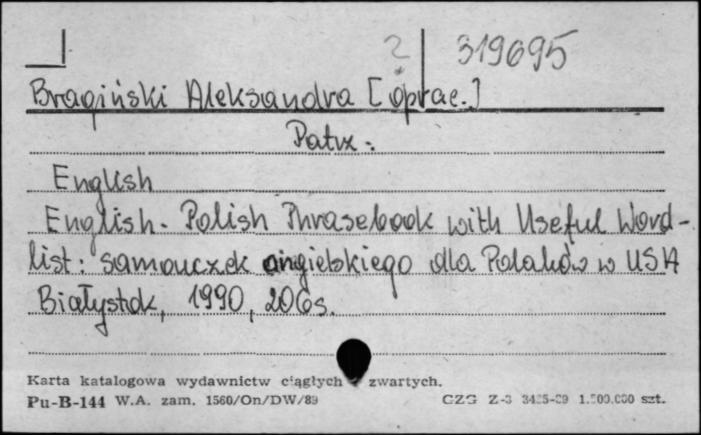 2 319695
Bragiński Aleksandra [oprac.]
Patrz:
English
English-Polish Phrasebook with Useful Word-
list: samouczek angielskiego dla Polaków w USA
Białystok, 1990, 206s.
Karta katalogowa wydawnictw ciągłych zwartych.
Pu-B-144 W.A. zam. 1560/On/DW/89 CZG Z-3 3435-89 1.500.000 szt.